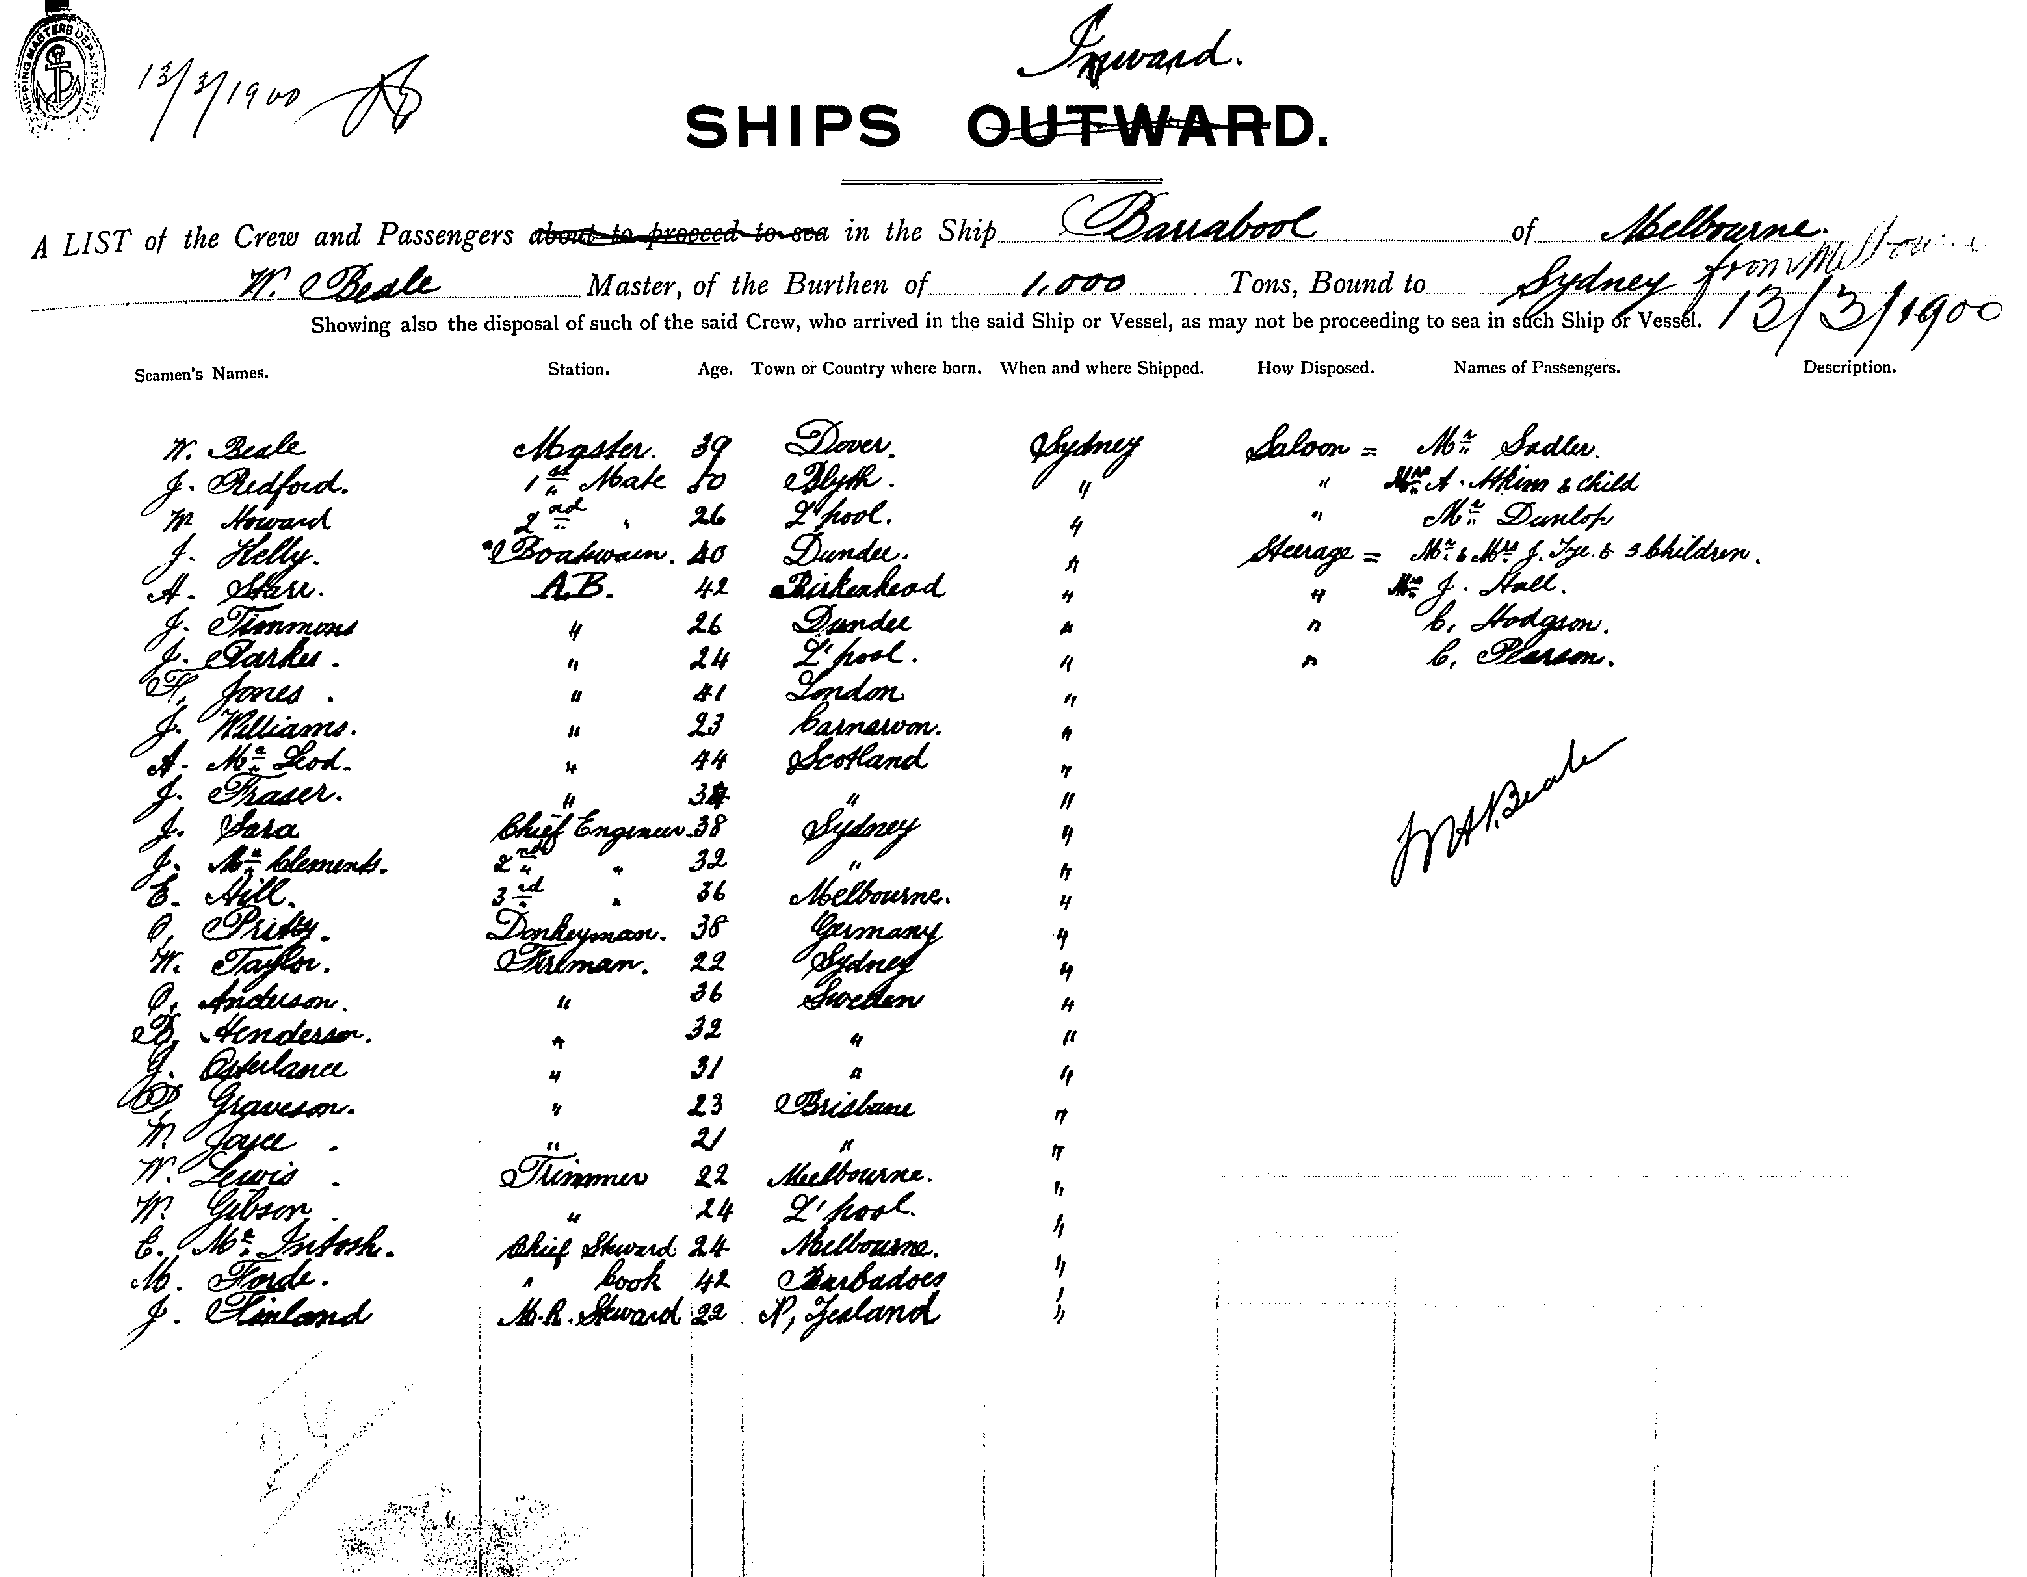 Inward.
SHIPPING MASTERS DEPARTMENT
13/3/1900
SHIPS OUTWARD.
A LIST of the Crew and Passengers about to proceed to sea in the Ship Barrabool of Melbourne.
W. Beale Master, of the Burthen of 1,000 Tons, Bound to Sydney from Melbourne
Showing also the disposal of such of the said Crew, who arrived in the said Ship or Vessel, as may not be proceeding to sea in such Ship or Vessel. 13/3/1900
Seamen's Names. Station. Age. Town or Country where born. When and where Shipped. How Disposed. Names of Passengers. Description.
W. Beale Master. 39 Dover. Sydney Saloon = Mr Sadler.
J. Redford. 1st Mate 50 Blyth. " " Mrs A. Atkins & Child
W Howard 2nd " 26 L'pool. " " Mr Dunlop
J. Kelly. Boatswain. 40 Dundee. " Steerage = Mr & Mrs J. Tye. & 3 Children.
A. Starr. A.B. 42 Birkenhead " " J. Hall.
J. Timmons " 26 Dundee " " C. Hodgson.
J. Parkes. " 24 L'pool. " " C. Pearson.
H. Jones. " 41 London "
J. Williams. " 23 Carnarvon. "
A. Mc Leod. " 44 Scotland "
J. Fraser. " 34 " "
J. Sara Chief Engineer 38 Sydney "
J. Mc Clements. 2nd " 32 " "
E. Hill. 3rd " 36 Melbourne. "
Donkeyman. 38 Germany "
W. Taylor. Fireman. 22 Sydney "
C. Anderson. " 36 Sweden "
B. Henderson. " 32 " "
G. Osterlance " 31 " "
P. Graveson. " 23 Brisbane "
W. Joyce. " 21 " "
W. Lewis. Trimmer 22 Melbourne. "
W. Gibson. " 24 L'pool. "
C. Mc Intosh. Chief Steward 24 Melbourne. "
M. Forde. " Cook 42 Barbadoes "
J. Finland M.R. Steward 22 N, Zealand "
W H. Beale
24